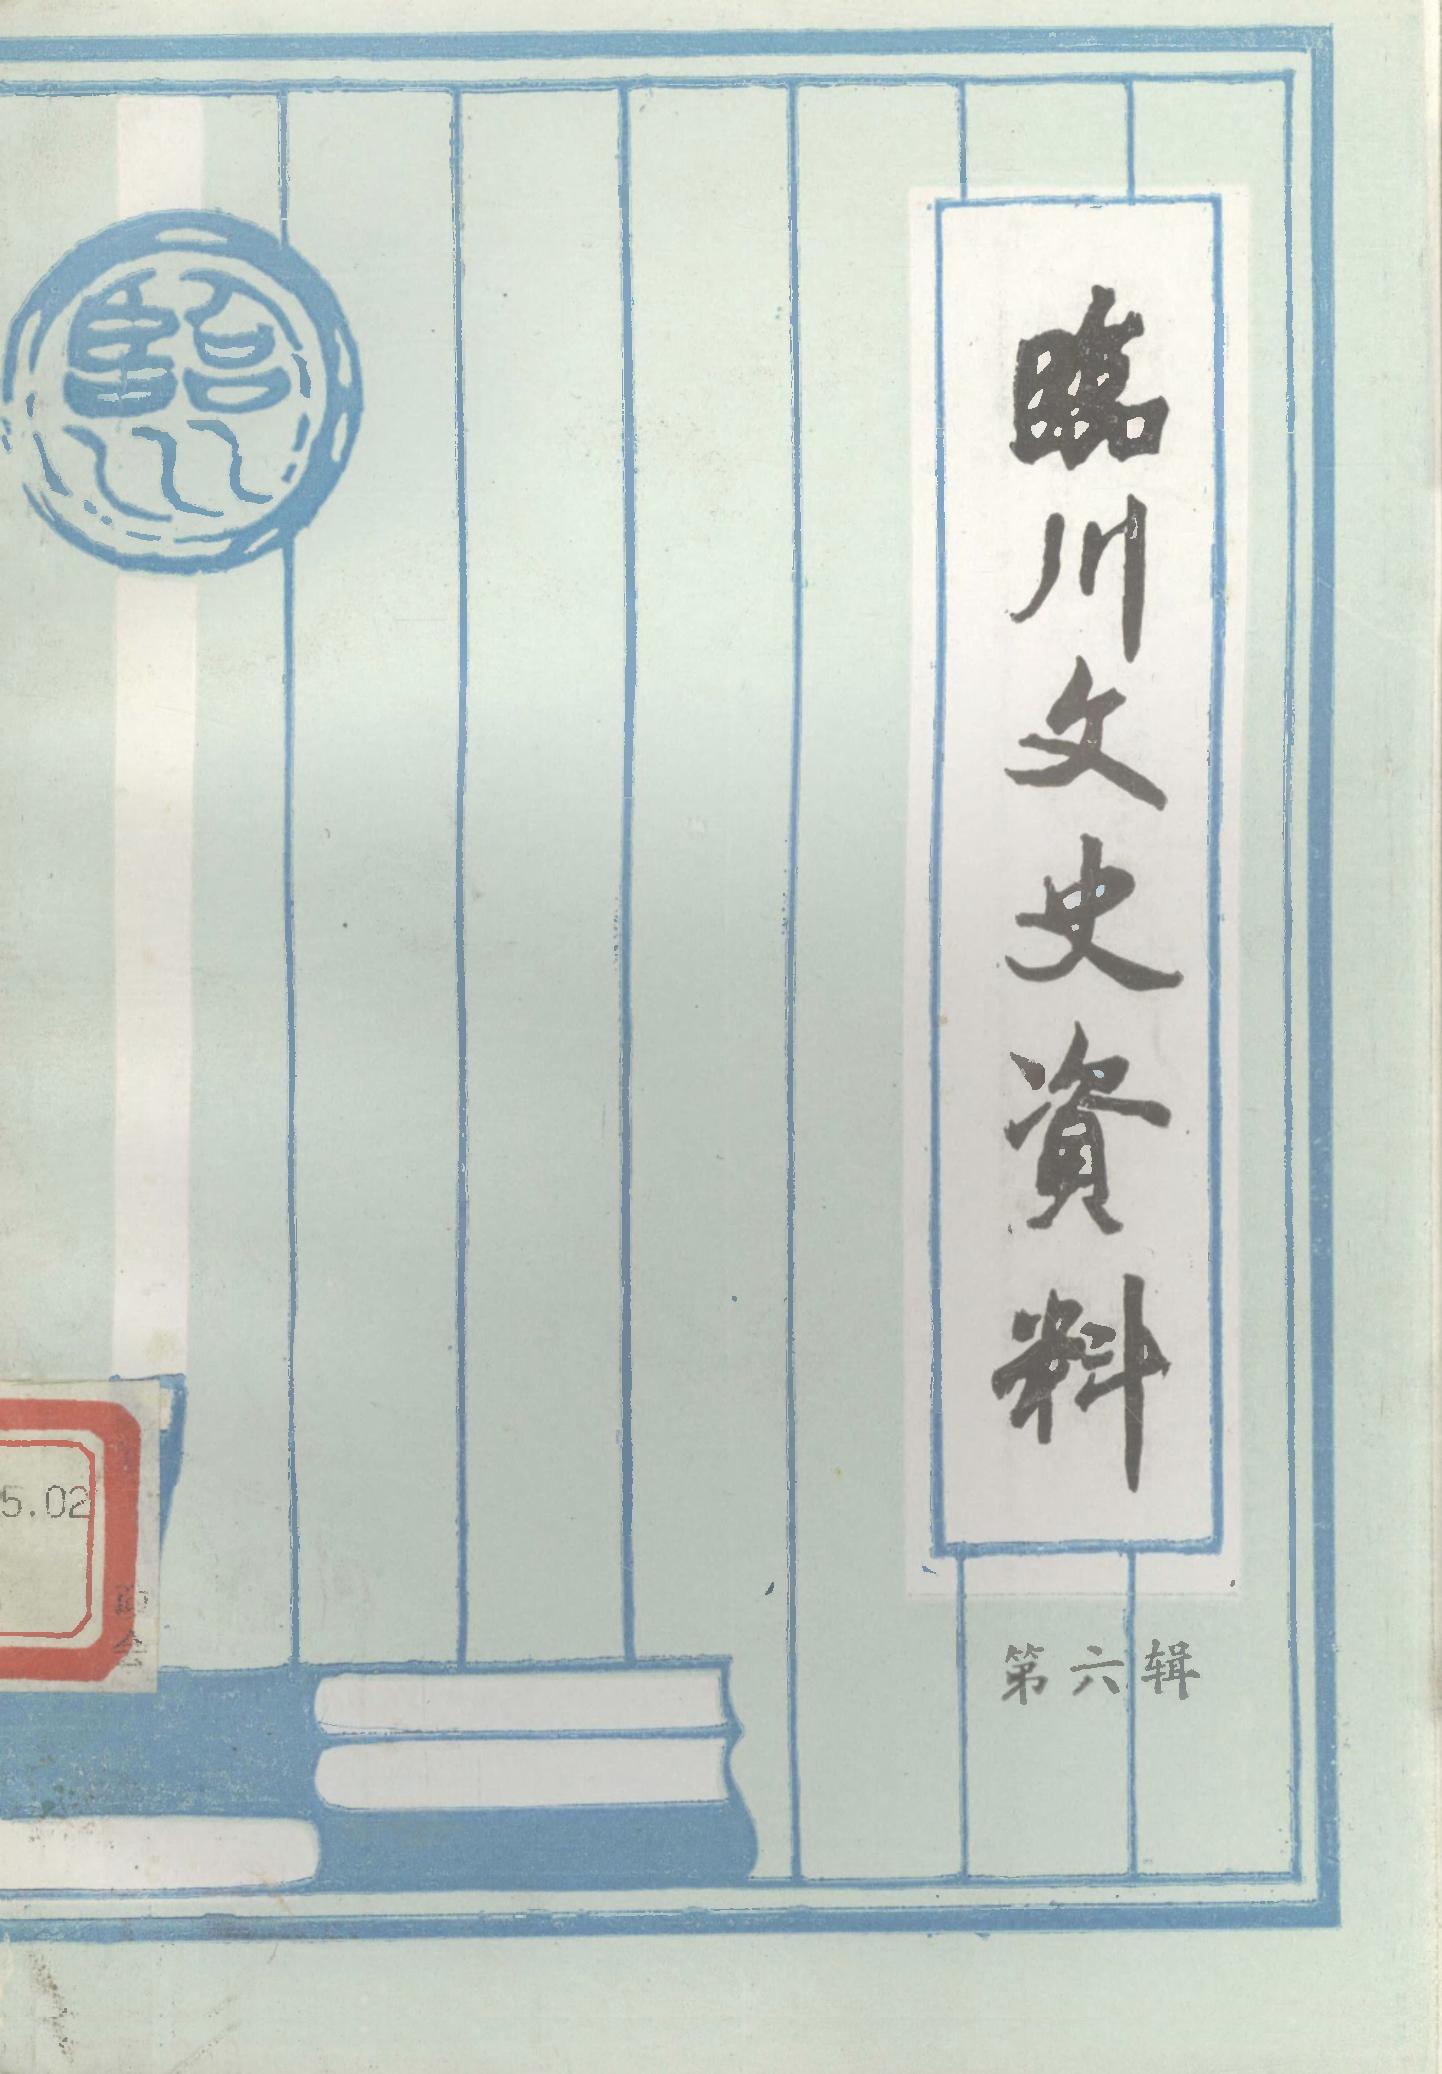 臨川文史資料
第六辑
5.02